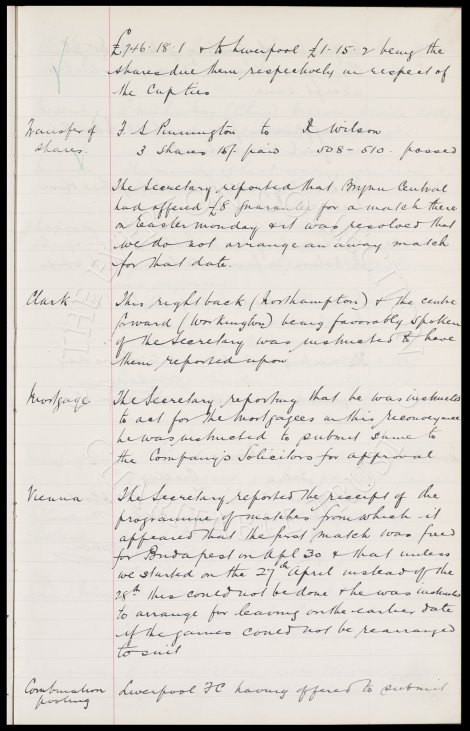 £746.18.1 & to Liverpool £1.15.2 being the
shares due them respectively in respect of
the Cup ties
Transfer of shares. F S Pinnington to D Wilson
3 shares 15/- paid 508-510. passed
The Secretary reported that Brynn Central
had offered £8 guarantee for a match there
on Easter Monday & it was resolved that
we do not arrange an away match
for that date.
Clark This right back (Northampton) & the centre
forward (Workington) being favorably spoken
of the Secretary was instructed to have
them reported upon
Mortgage The Secretary reporting that he was instructed
to act for the Mortgagees in this reconveyance
he was instructed to submit same to
the Company's Solicitors for approval
Vienna The Secretary reported the receipt of the
programme of matches from which it
appeared that the first match was fixed
for Budapest on Apl 30 & that unless
we started on the 27th April instead of the
28th this could not be done & he was instructed
to arrange for leaving on the earlier date
if the games could not be rearranged
to suit
Combination Liverpool FC having offered to submit